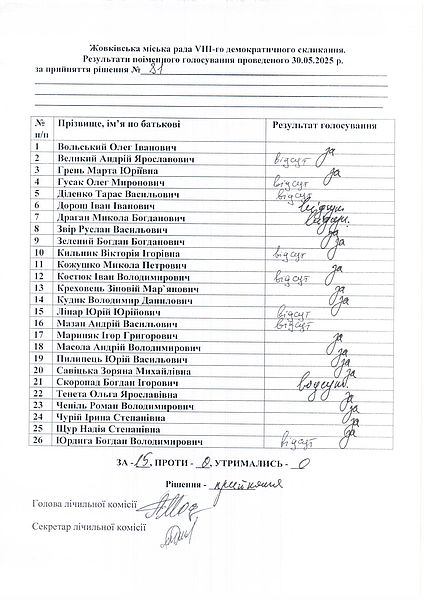 Жовківська міська рада VIII-го демократичного скликання.
Результати поіменного голосування проведеного 30.05.2025 р.
за прийняття рішення № 81
№ п/п Прізвище, ім’я по батькові Результат голосування
1 Вольський Олег Іванович за
2 Великий Андрій Ярославович відсут
3 Грень Марта Юріївна за
4 Гусак Олег Миронович відсут
5 Діденко Тарас Васильович відсут
6 Дорош Іван Іванович
7 Драган Микола Богданович
8 Звір Руслан Васильович за
9 Зелений Богдан Богданович за
10 Кильник Вікторія Ігорівна відсут
11 Кожушко Микола Петрович за
12 Костюк Іван Володимирович відсут
13 Креховець Зіновій Мар`янович за
14 Кудик Володимир Данилович за
15 Лінар Юрій Юрійович відсут
16 Мазан Андрій Васильович відсут
17 Мариняк Ігор Григорович за
18 Масола Андрій Володимирович за
19 Пилипець Юрій Васильович за
20 Савіцька Зоряна Михайлівна за
21 Скоропад Богдан Ігорович
22 Тенета Ольга Ярославівна за
23 Чепіль Роман Володимирович за
24 Чурій Ірина Степанівна за
25 Щур Надія Степанівна за
26 Юрдига Богдан Володимирович відсут
ЗА - 15, ПРОТИ - 0, УТРИМАЛИСЬ - 0
Рішення - прийняння
Голова лічильної комісії
Секретар лічильної комісії